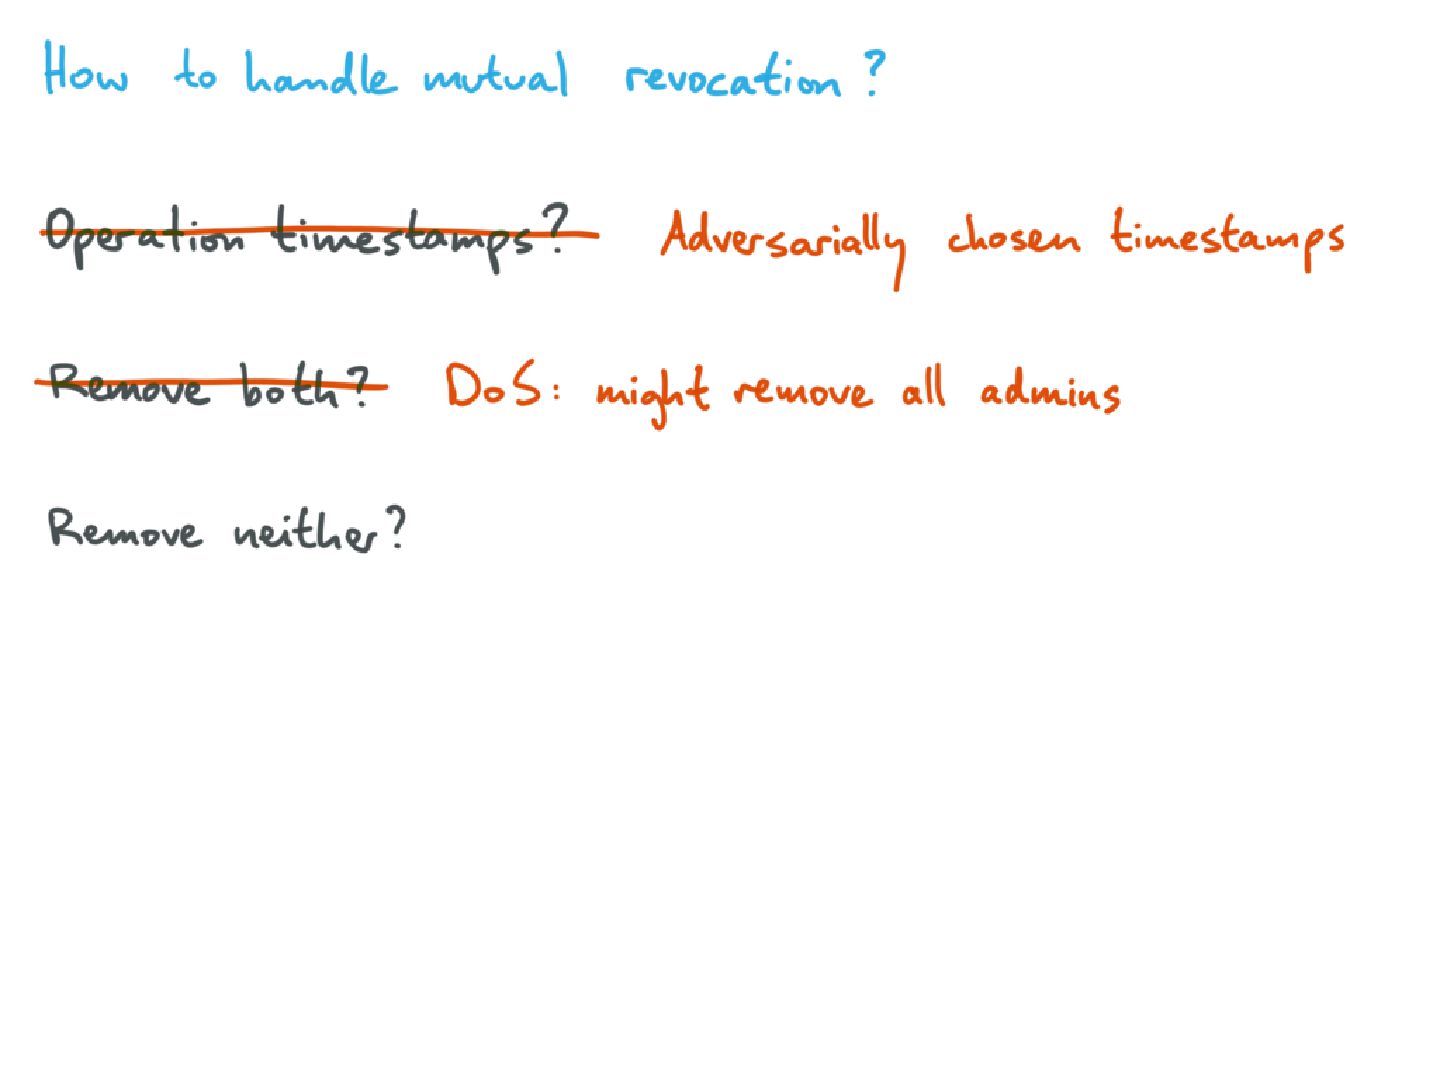 How to handle mutual revocation?
Operation timestamps? Adversarially chosen timestamps
Remove both? DoS: might remove all admins
Remove neither?